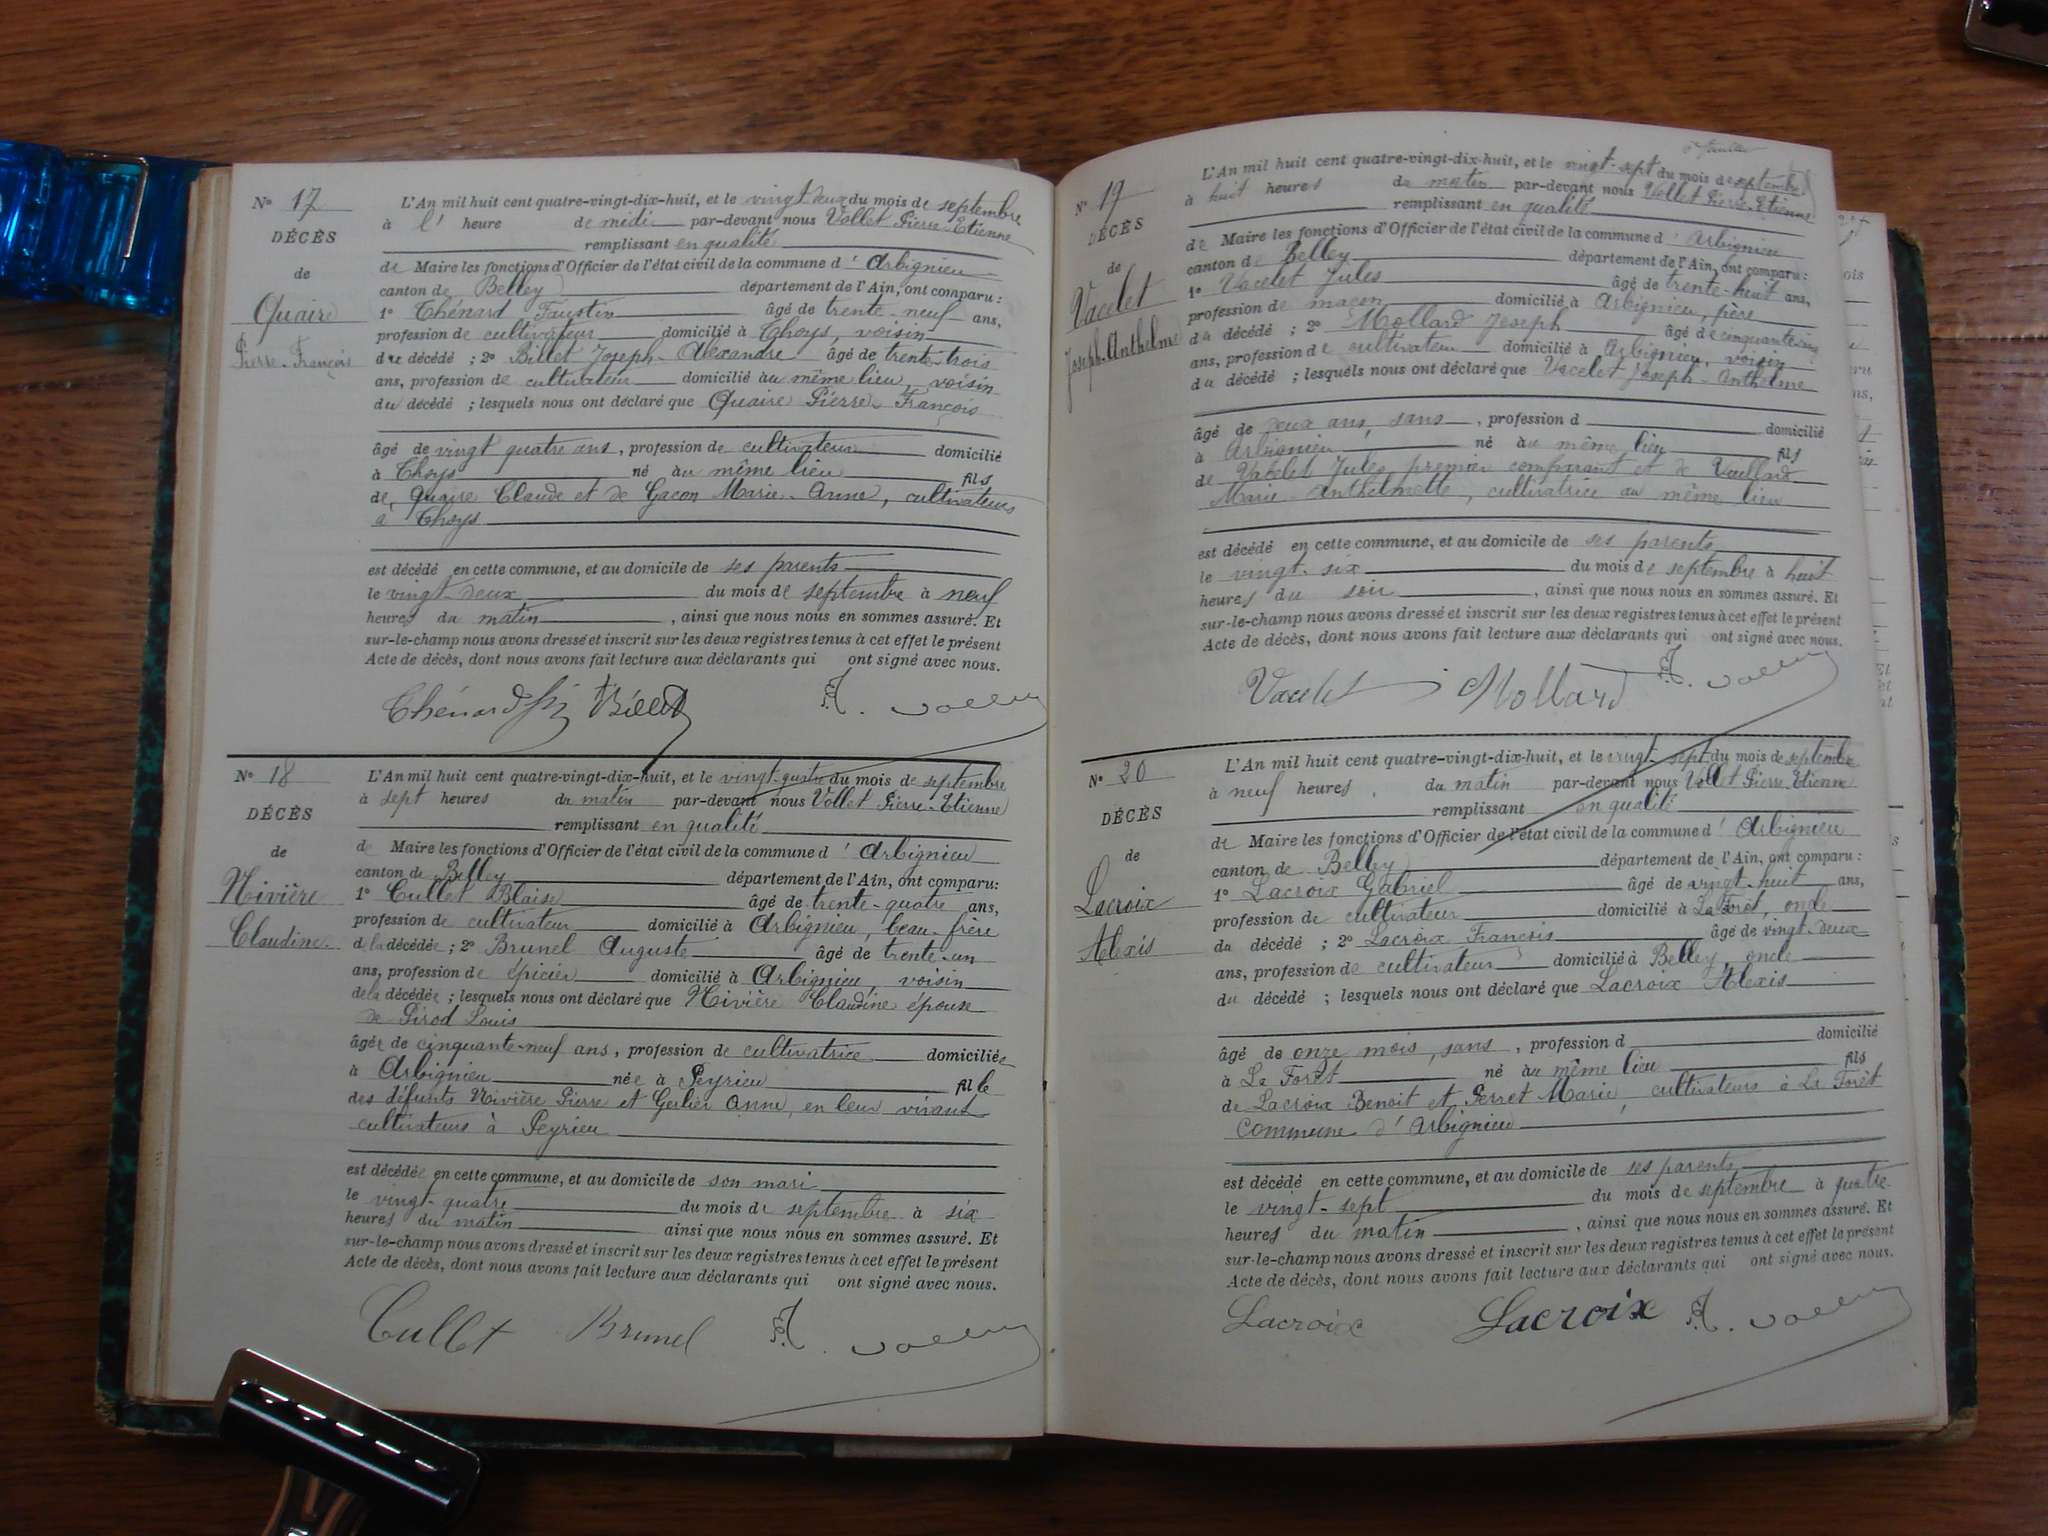 N° 17
DÉCÈS
de
Quaire
Pierre-François
L'An mil huit cent quatre-vingt-dix-huit, et le vingt deux du mois de septembre
à l' heure de midi par-devant nous Vollet Pierre-Etienne
remplissant en qualité
de Maire les fonctions d'Officier de l'état civil de la commune d' Arbignieu
canton de Belley département de l'Ain, ont comparu:
1° Chénard Faustin âgé de trente-neuf ans,
profession de cultivateur domicilié à Thoys, voisin
du décédé ; 2° Billet Joseph-Alexandre âgé de trente-trois
ans, profession de cultivateur domicilié au même lieu, voisin
du décédé ; lesquels nous ont déclaré que Quaire Pierre-François
âgé de vingt quatre ans, profession de cultivateur domicilié
à Thoys né au même lieu fils
de Quaire Claude et de Gacon Marie-Anne, cultivateurs
à Thoys
est décédé en cette commune, et au domicile de ses parents
le vingt deux du mois de septembre à neuf
heures du matin, ainsi que nous nous en sommes assuré. Et
sur-le-champ nous avons dressé et inscrit sur les deux registres tenus à cet effet le présent
Acte de décès, dont nous avons fait lecture aux déclarants qui ont signé avec nous.
Chénard Billet Vollet
N° 18
DÉCÈS
de
Nivière
Claudine
L'An mil huit cent quatre-vingt-dix-huit, et le vingt-quatre du mois de septembre
à sept heures du matin par-devant nous Vollet Pierre-Etienne
remplissant en qualité
de Maire les fonctions d'Officier de l'état civil de la commune d' Arbignieu
canton de Belley département de l'Ain, ont comparu:
1° Cullet Blaise âgé de trente-quatre ans,
profession de cultivateur domicilié à Arbignieu, beau-frère
de la décédée ; 2° Brunel Auguste âgé de trente-un
ans, profession de épicier domicilié à Arbignieu, voisin
de la décédée ; lesquels nous ont déclaré que Nivière Claudine épouse
de Pirod Louis
âgée de cinquante-neuf ans, profession de cultivatrice domiciliée
à Arbignieu née à Peyrieu fille
des défunts Nivière Pierre et Gerlier Anne, en leur vivant
cultivateurs à Peyrieu
est décédée en cette commune, et au domicile de son mari
le vingt-quatre du mois de septembre à six
heures du matin ainsi que nous nous en sommes assuré. Et
sur-le-champ nous avons dressé et inscrit sur les deux registres tenus à cet effet le présent
Acte de décès, dont nous avons fait lecture aux déclarants qui ont signé avec nous.
Cullet Brunel Vollet
N° 19
DÉCÈS
de
Vacelet
Joseph-Anthelme
L'An mil huit cent quatre-vingt-dix-huit, et le vingt-sept du mois de septembre
à huit heures du matin par-devant nous Vollet Pierre-Etienne
remplissant en qualité
de Maire les fonctions d'Officier de l'état civil de la commune d' Arbignieu
canton de Belley département de l'Ain, ont comparu:
1° Vacelet Jules âgé de trente-huit ans,
profession de maçon domicilié à Arbignieu, père
du décédé ; 2° Mollard Joseph âgé de cinquante-cinq
ans, profession de cultivateur domicilié à Arbignieu, voisin
du décédé ; lesquels nous ont déclaré que Vacelet Joseph-Anthelme
âgé de deux ans, sans, profession d domicilié
à Arbignieu né au même lieu fils
de Vacelet Jules premier comparant et de Vaillard
Marie Anthelmette, cultivatrice au même lieu
est décédé en cette commune, et au domicile de ses parents
le vingt-six du mois de septembre à huit
heures du soir, ainsi que nous nous en sommes assuré. Et
sur-le-champ nous avons dressé et inscrit sur les deux registres tenus à cet effet le présent
Acte de décès, dont nous avons fait lecture aux déclarants qui ont signé avec nous.
Vacelet Mollard Vollet
N° 20
DÉCÈS
de
Lacroix
Alexis
L'An mil huit cent quatre-vingt-dix-huit, et le vingt-sept du mois de septembre
à neuf heures du matin par-devant nous Vollet Pierre-Etienne
remplissant en qualité
de Maire les fonctions d'Officier de l'état civil de la commune d' Arbignieu
canton de Belley département de l'Ain, ont comparu:
1° Lacroix Gabriel âgé de vingt-huit ans,
profession de cultivateur domicilié à La Forêt, oncle
du décédé ; 2° Lacroix François âgé de vingt-deux
ans, profession de cultivateur domicilié à Belley, oncle
du décédé ; lesquels nous ont déclaré que Lacroix Alexis
âgé de onze mois, sans, profession d domicilié
à La Forêt né au même lieu fils
de Lacroix Benoit et Perret Marie, cultivateurs à La Forêt
commune d'Arbignieu
est décédé en cette commune, et au domicile de ses parents
le vingt-sept du mois de septembre à quatre
heures du matin, ainsi que nous nous en sommes assuré. Et
sur-le-champ nous avons dressé et inscrit sur les deux registres tenus à cet effet le présent
Acte de décès, dont nous avons fait lecture aux déclarants qui ont signé avec nous.
Lacroix Lacroix Vollet